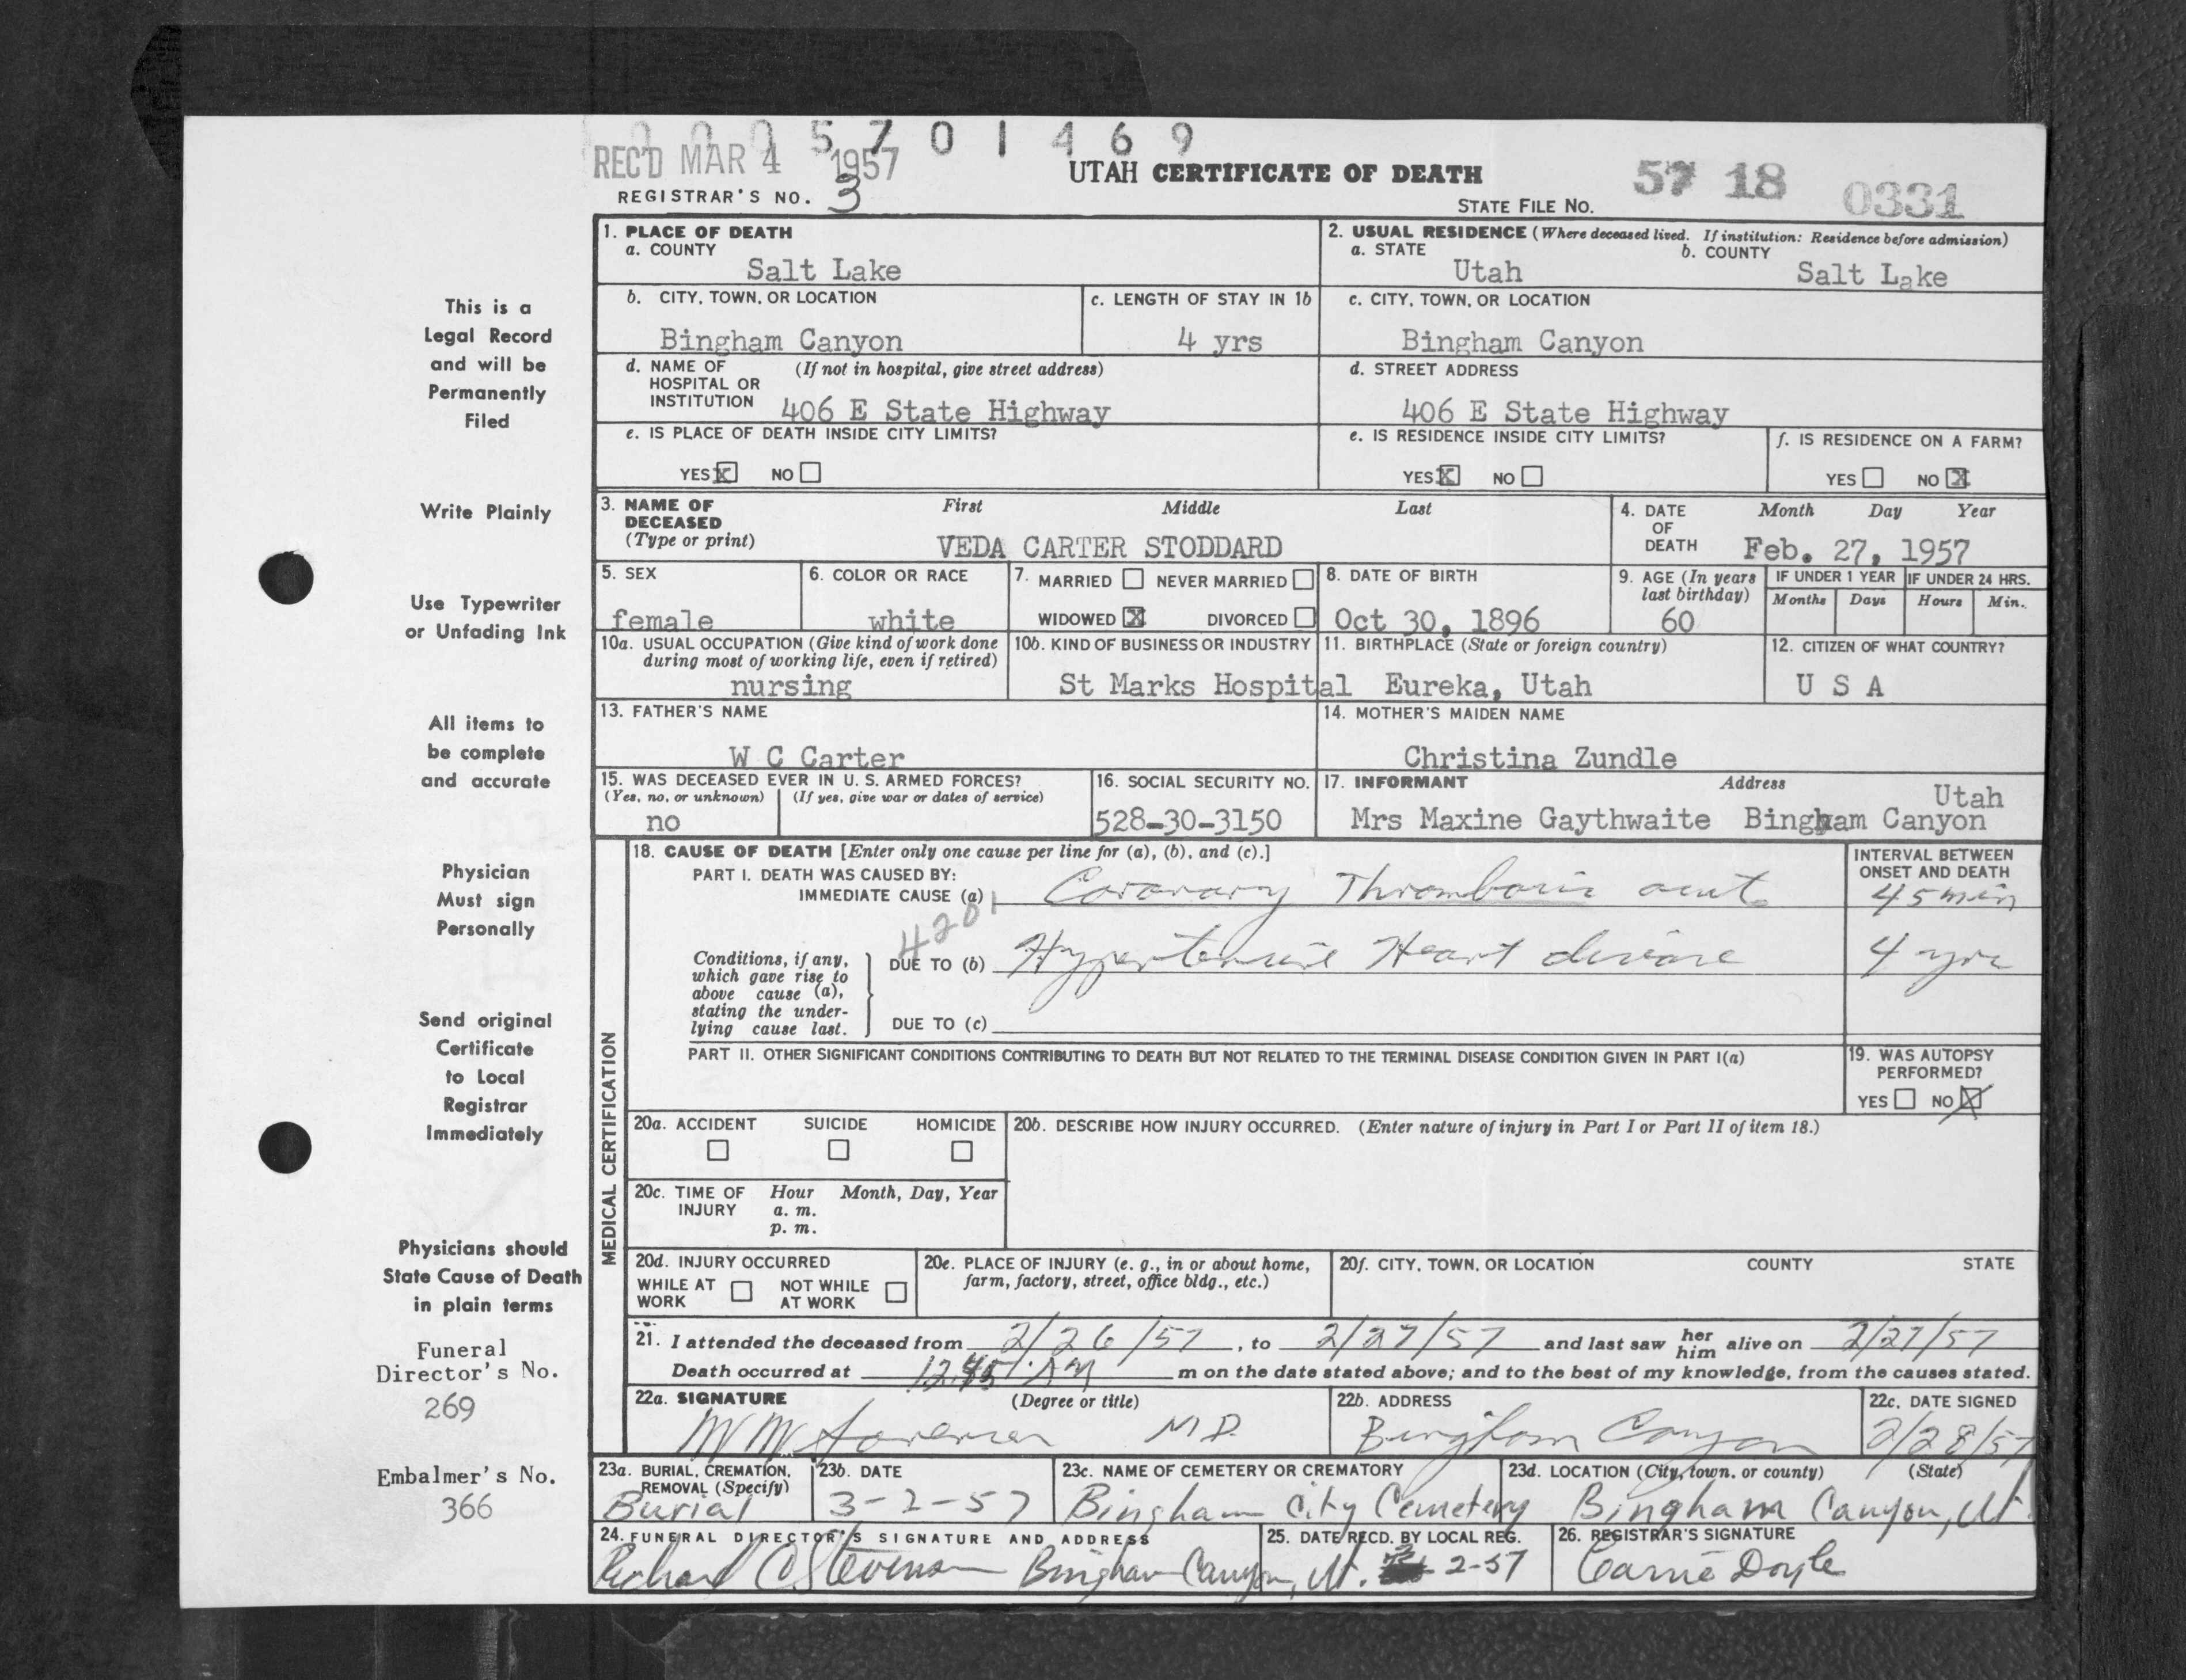 0005701469
REC'D MAR 4 1957
UTAH CERTIFICATE OF DEATH
57 18 0331
REGISTRAR'S NO. 3
STATE FILE NO.
This is a
Legal Record
and will be
Permanently
Filed
Write Plainly
Use Typewriter
or Unfading Ink
All items to
be complete
and accurate
Physician
Must sign
Personally
Send original
Certificate
to Local
Registrar
Immediately
Physicians should
State Cause of Death
in plain terms
Funeral
Director's No.
269
Embalmer's No.
366
1. PLACE OF DEATH
a. COUNTY
Salt Lake
2. USUAL RESIDENCE (Where deceased lived. If institution: Residence before admission)
a. STATE
Utah
b. COUNTY
Salt Lake
b. CITY, TOWN, OR LOCATION
Bingham Canyon
c. LENGTH OF STAY IN 1b
4 yrs
c. CITY, TOWN, OR LOCATION
Bingham Canyon
d. NAME OF (If not in hospital, give street address)
HOSPITAL OR
INSTITUTION 406 E State Highway
d. STREET ADDRESS
406 E State Highway
e. IS PLACE OF DEATH INSIDE CITY LIMITS?
YES X NO
e. IS RESIDENCE INSIDE CITY LIMITS?
YES X NO
f. IS RESIDENCE ON A FARM?
YES NO X
3. NAME OF First Middle Last
DECEASED
(Type or print)
VEDA CARTER STODDARD
4. DATE Month Day Year
OF
DEATH Feb. 27, 1957
5. SEX
female
6. COLOR OR RACE
white
7. MARRIED NEVER MARRIED
WIDOWED X DIVORCED
8. DATE OF BIRTH
Oct 30, 1896
9. AGE (In years
last birthday)
60
IF UNDER 1 YEAR
Months Days
IF UNDER 24 HRS.
Hours Min.
10a. USUAL OCCUPATION (Give kind of work done
during most of working life, even if retired)
nursing
10b. KIND OF BUSINESS OR INDUSTRY
St Marks Hospital
11. BIRTHPLACE (State or foreign country)
Eureka, Utah
12. CITIZEN OF WHAT COUNTRY?
U S A
13. FATHER'S NAME
W C Carter
14. MOTHER'S MAIDEN NAME
Christina Zundle
15. WAS DECEASED EVER IN U. S. ARMED FORCES?
(Yes, no, or unknown) (If yes, give war or dates of service)
no
16. SOCIAL SECURITY NO.
528-30-3150
17. INFORMANT Address
Utah
Mrs Maxine Gaythwaite Bingham Canyon
MEDICAL CERTIFICATION
18. CAUSE OF DEATH [Enter only one cause per line for (a), (b), and (c).]
PART I. DEATH WAS CAUSED BY:
IMMEDIATE CAUSE (a) Coronary Thrombosis acute
INTERVAL BETWEEN
ONSET AND DEATH
45 min
4201
Conditions, if any,
which gave rise to
above cause (a),
stating the under-
lying cause last.
DUE TO (b) Hypertensive Heart disease
4 yrs
DUE TO (c)
PART II. OTHER SIGNIFICANT CONDITIONS CONTRIBUTING TO DEATH BUT NOT RELATED TO THE TERMINAL DISEASE CONDITION GIVEN IN PART I(a)
19. WAS AUTOPSY
PERFORMED?
YES NO X
20a. ACCIDENT SUICIDE HOMICIDE
20b. DESCRIBE HOW INJURY OCCURRED. (Enter nature of injury in Part I or Part II of item 18.)
20c. TIME OF Hour Month, Day, Year
INJURY a. m.
p. m.
20d. INJURY OCCURRED
WHILE AT NOT WHILE
WORK AT WORK
20e. PLACE OF INJURY (e. g., in or about home,
farm, factory, street, office bldg., etc.)
20f. CITY, TOWN, OR LOCATION COUNTY STATE
21. I attended the deceased from 2/26/57, to 2/27/57 and last saw her him alive on 2/27/57
Death occurred at 12:45 AM m on the date stated above; and to the best of my knowledge, from the causes stated.
22a. SIGNATURE (Degree or title)
M.D.
22b. ADDRESS
Bingham Canyon
22c. DATE SIGNED
2/28/57
23a. BURIAL, CREMATION,
REMOVAL (Specify)
Burial
23b. DATE
3-2-57
23c. NAME OF CEMETERY OR CREMATORY
Bingham City Cemetery
23d. LOCATION (City, town, or county) (State)
Bingham Canyon, Ut.
24. FUNERAL DIRECTOR'S SIGNATURE AND ADDRESS
Richard C. Stevenson Bingham Canyon, Ut.
25. DATE RECD. BY LOCAL REG.
2-57
26. REGISTRAR'S SIGNATURE
Carrie Doyle